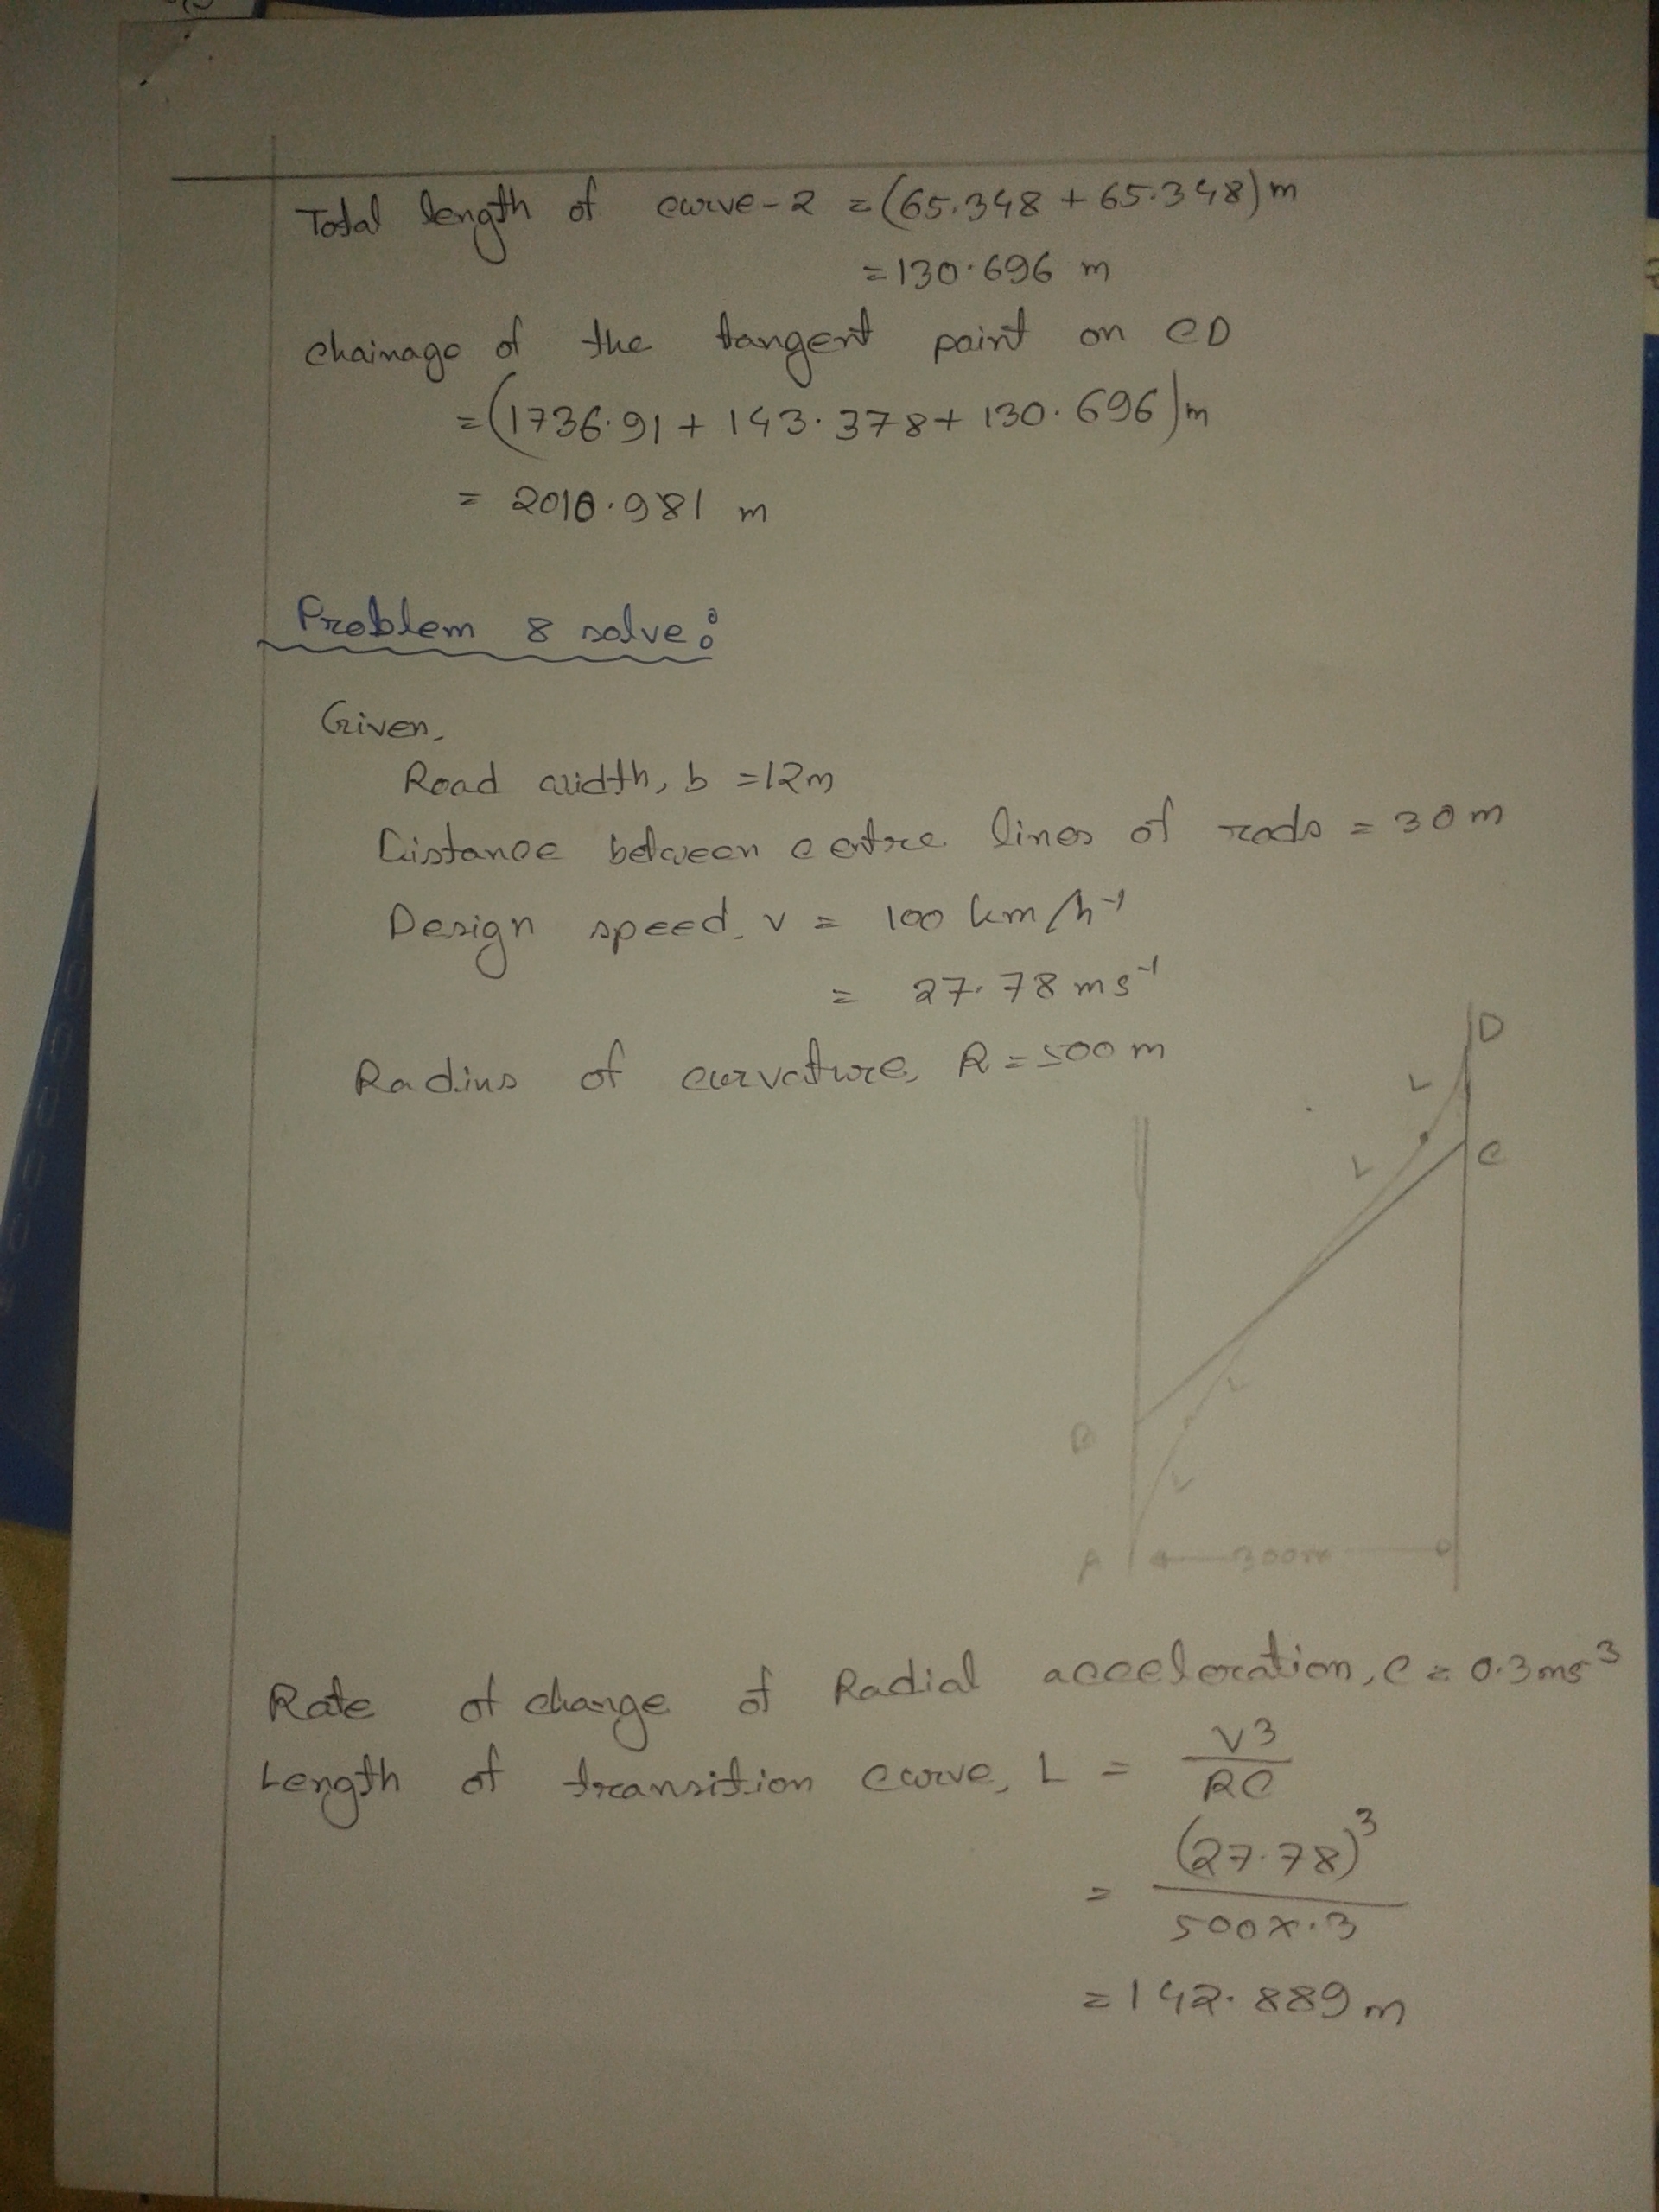 Total length of curve-2 = (65.348 + 65.348) m
= 130.696 m
chainage of the tangent point on CD
= (1736.91 + 143.378 + 130.696) m
= 2010.981 m
Problem 8 solve:
Given,
Road width, b = 12m
Distance between centre lines of rods = 30 m
Design speed, v = 100 km/h⁻¹
= 27.78 ms⁻¹
Radius of curvature, R = 500 m
D
L
L
C
L
B
L
A
300m
Rate of change of Radial acceleration, C = 0.3 ms⁻³
Length of transition curve, L = V3/RC
= (27.78)³/500×.3
= 142.889 m